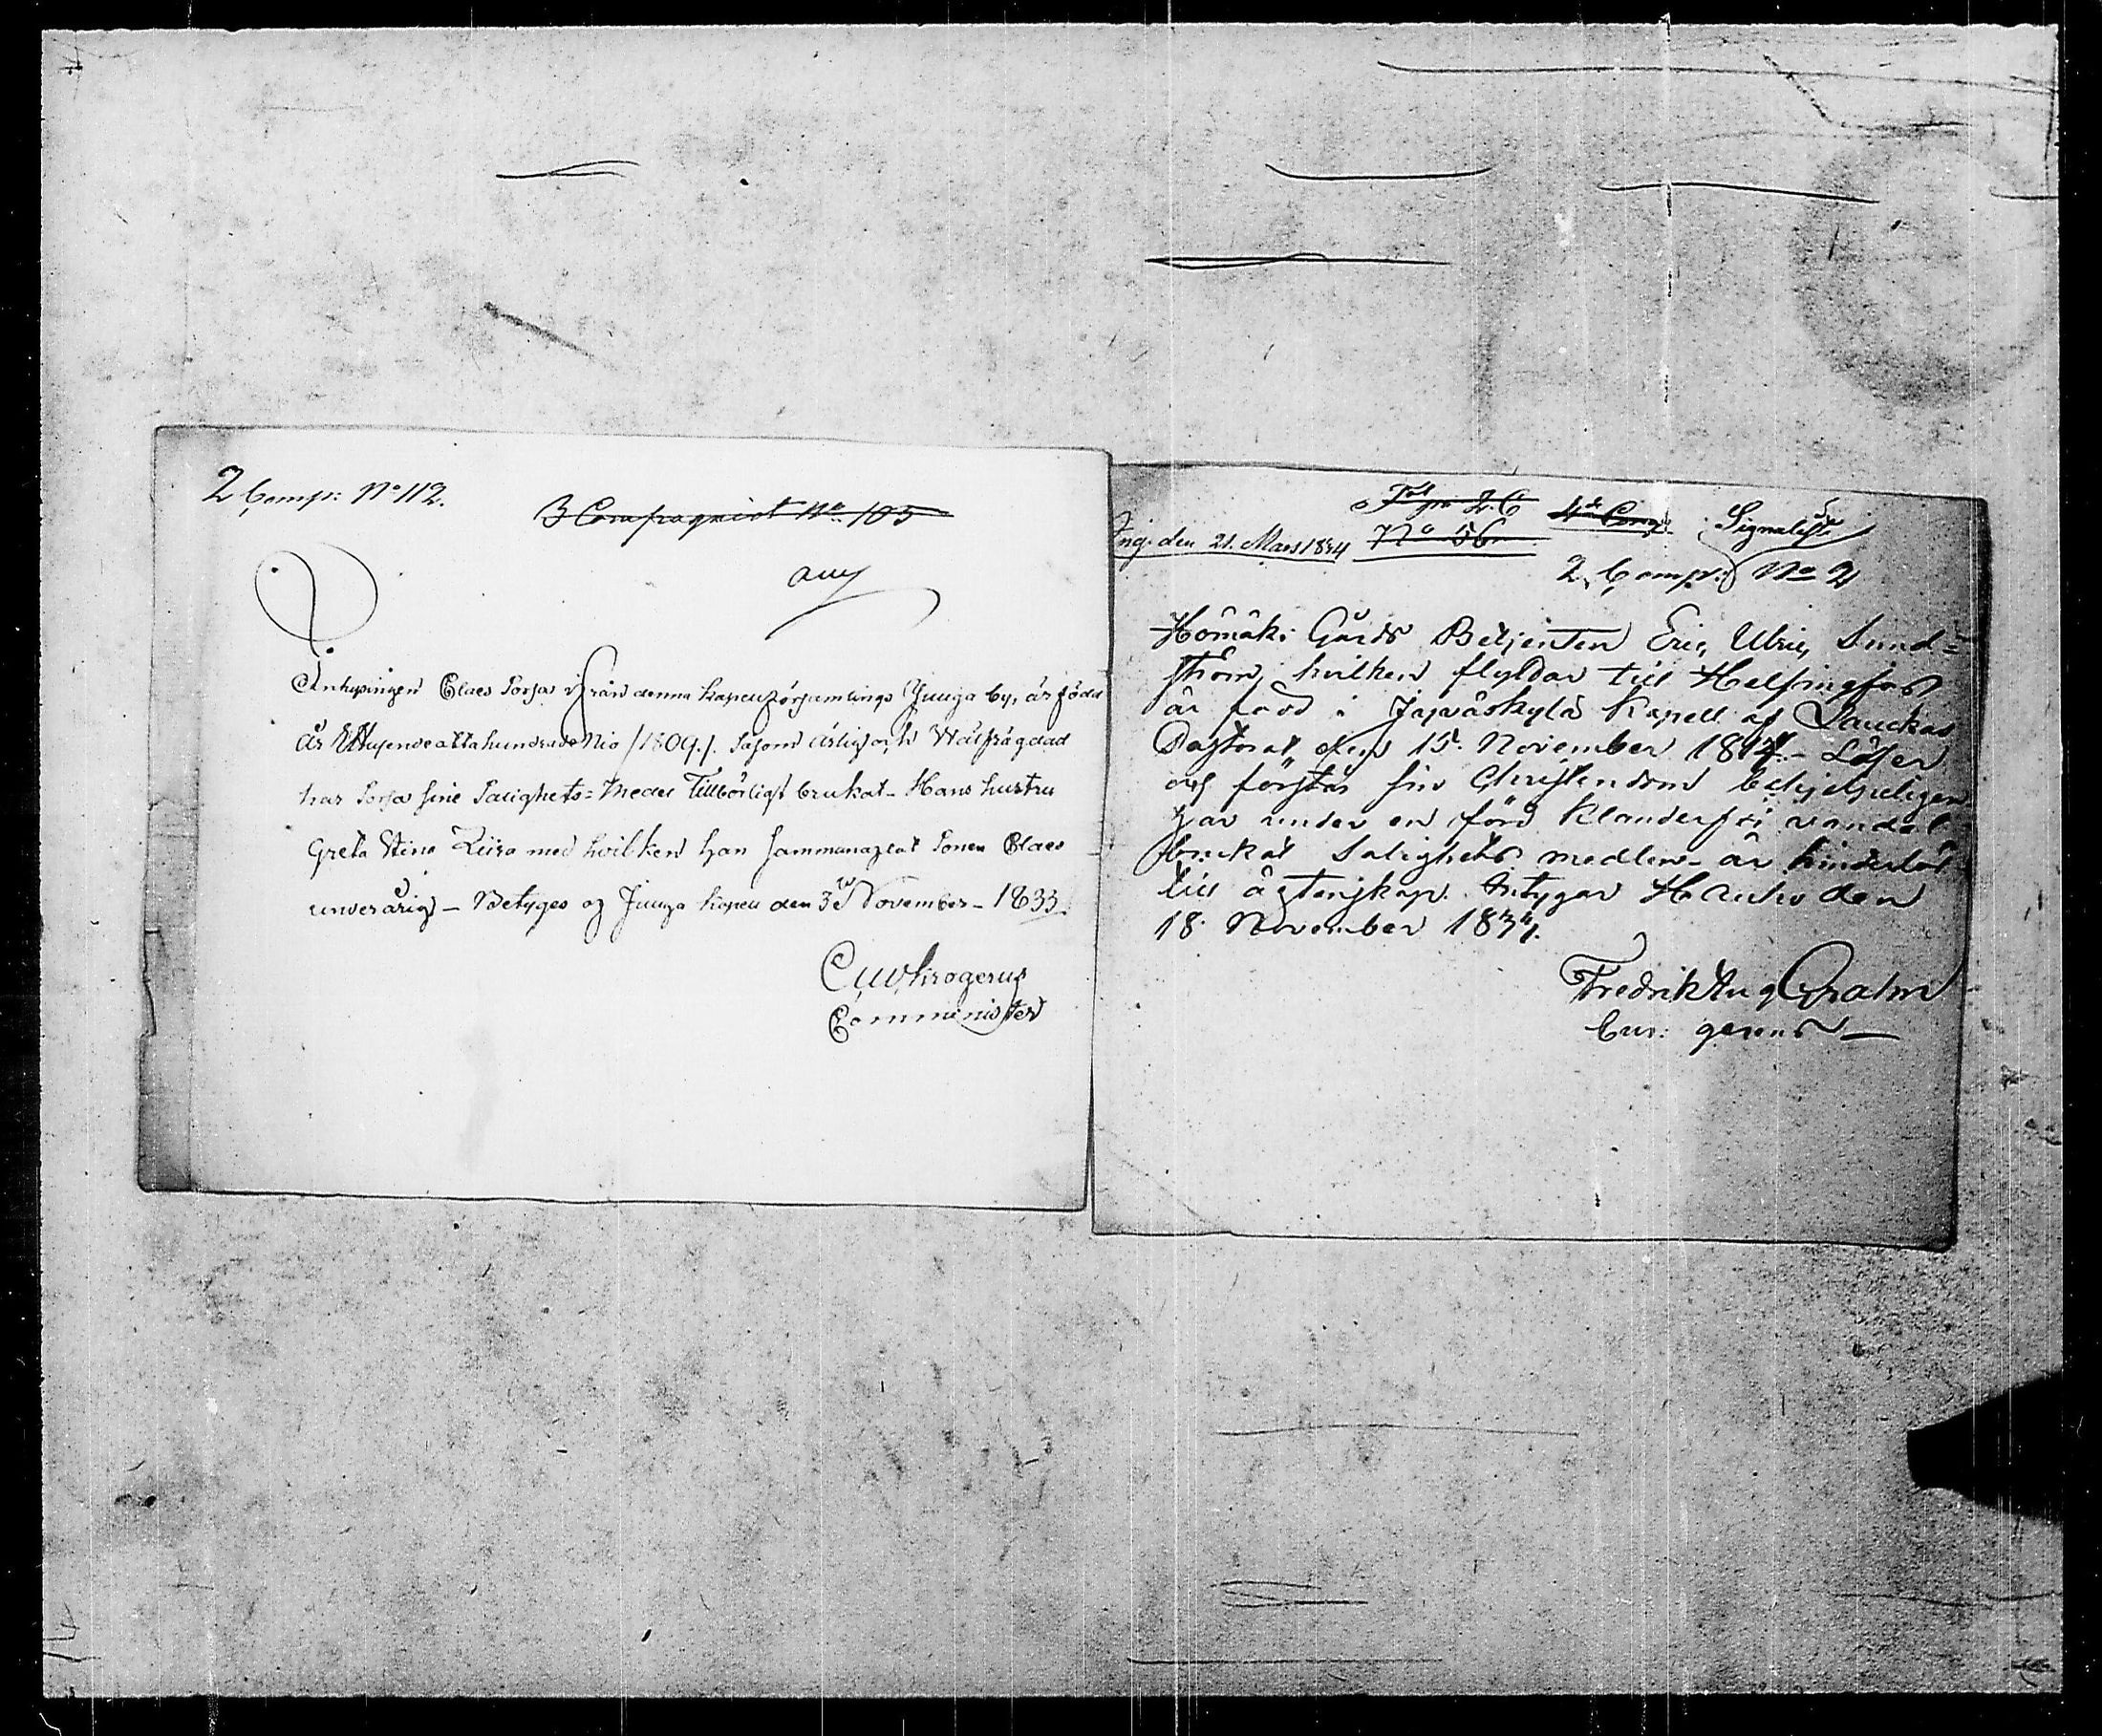 2 Comp: No 112.
3 Compagniet No 105
Inhysingen Claes Sorsa ifrån denna Kapellförsamlings Juuga by, är född
år Ettusendeåttahundrade Nio /:1809:/. Såsom ärlig och Wälfrägdad
har Sorsa sine Salighets-Medel Tillbörligt brukat – Hans hustru
Greta Stina Ziira med hvilken han sammanaflat Sonen Claes
underårig – Betygas af Juuga Kapell den 3de November – 1833.
Krogerus
Comminister
No 56 4de Comp. Signalist
Ing. den 21. Mars 1834
2 Comp: No 2
Gårds Betjenten Eric Ulric Sund=
ström, hvilken flyttar till Helsingfors
är född i Jywäskylä Kapell af Laukas
Pastorat den 15. November 1814. – Läser
och förstår sin Christendom behjelpeligen
har under en förd klanderfri vandel
brukat Salighets medlen – är hinderlös
till ägtenskap. Intygar Hauho den
18. November 1834.
Fredrik Aug
Cur: gerens